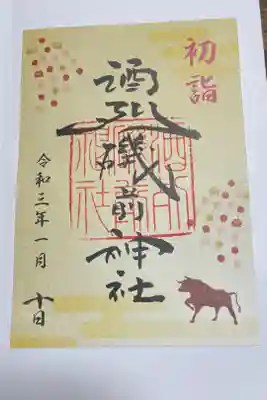 初詣
酒列磯前神社
令和三年一月十日